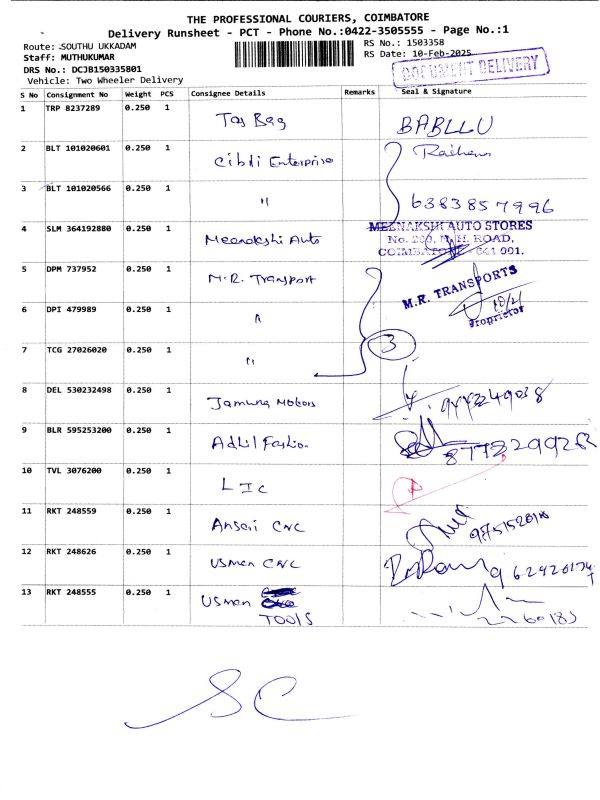 THE PROFESSIONAL COURIERS, COIMBATORE
Delivery Runsheet - PCT - Phone No.:0422-3505555 - Page No.:1
Route: SOUTHU UKKADAM
RS No.: 1503358
Staff: MUTHUKUMAR
RS Date: 10-Feb-2025
DRS No.: DCJB150335801
DOCUMENT DELIVERY
Vehicle: Two Wheeler Delivery
S No Consignment No Weight PCS Consignee Details Remarks Seal & Signature
1 TRP 8237289 0.250 1 BABLLU
2 BLT 101020601 0.250 1 Cibdi Enterprise
3 BLT 101020566 0.250 1 " 6383857996
4 SLM 364192880 0.250 1 Meenakshi Auto MEENAKSHI AUTO STORES
ROAD,
COIMBATORE - 641 001.
5 DPM 737952 0.250 1 M.R. Transport M.R. TRANSPORTS
6 DPI 479989 0.250 1 " 10/2
Proprietor
7 TCG 27026020 0.250 1 " 3
8 DEL 530232498 0.250 1 Jamuna Motors
9 BLR 595253200 0.250 1 Adhil Fashion
10 TVL 3076200 0.250 1 LIC
11 RKT 248559 0.250 1 Ansari CNC
12 RKT 248626 0.250 1 Usman CNC
13 RKT 248555 0.250 1 Usman
TOOLS
SC